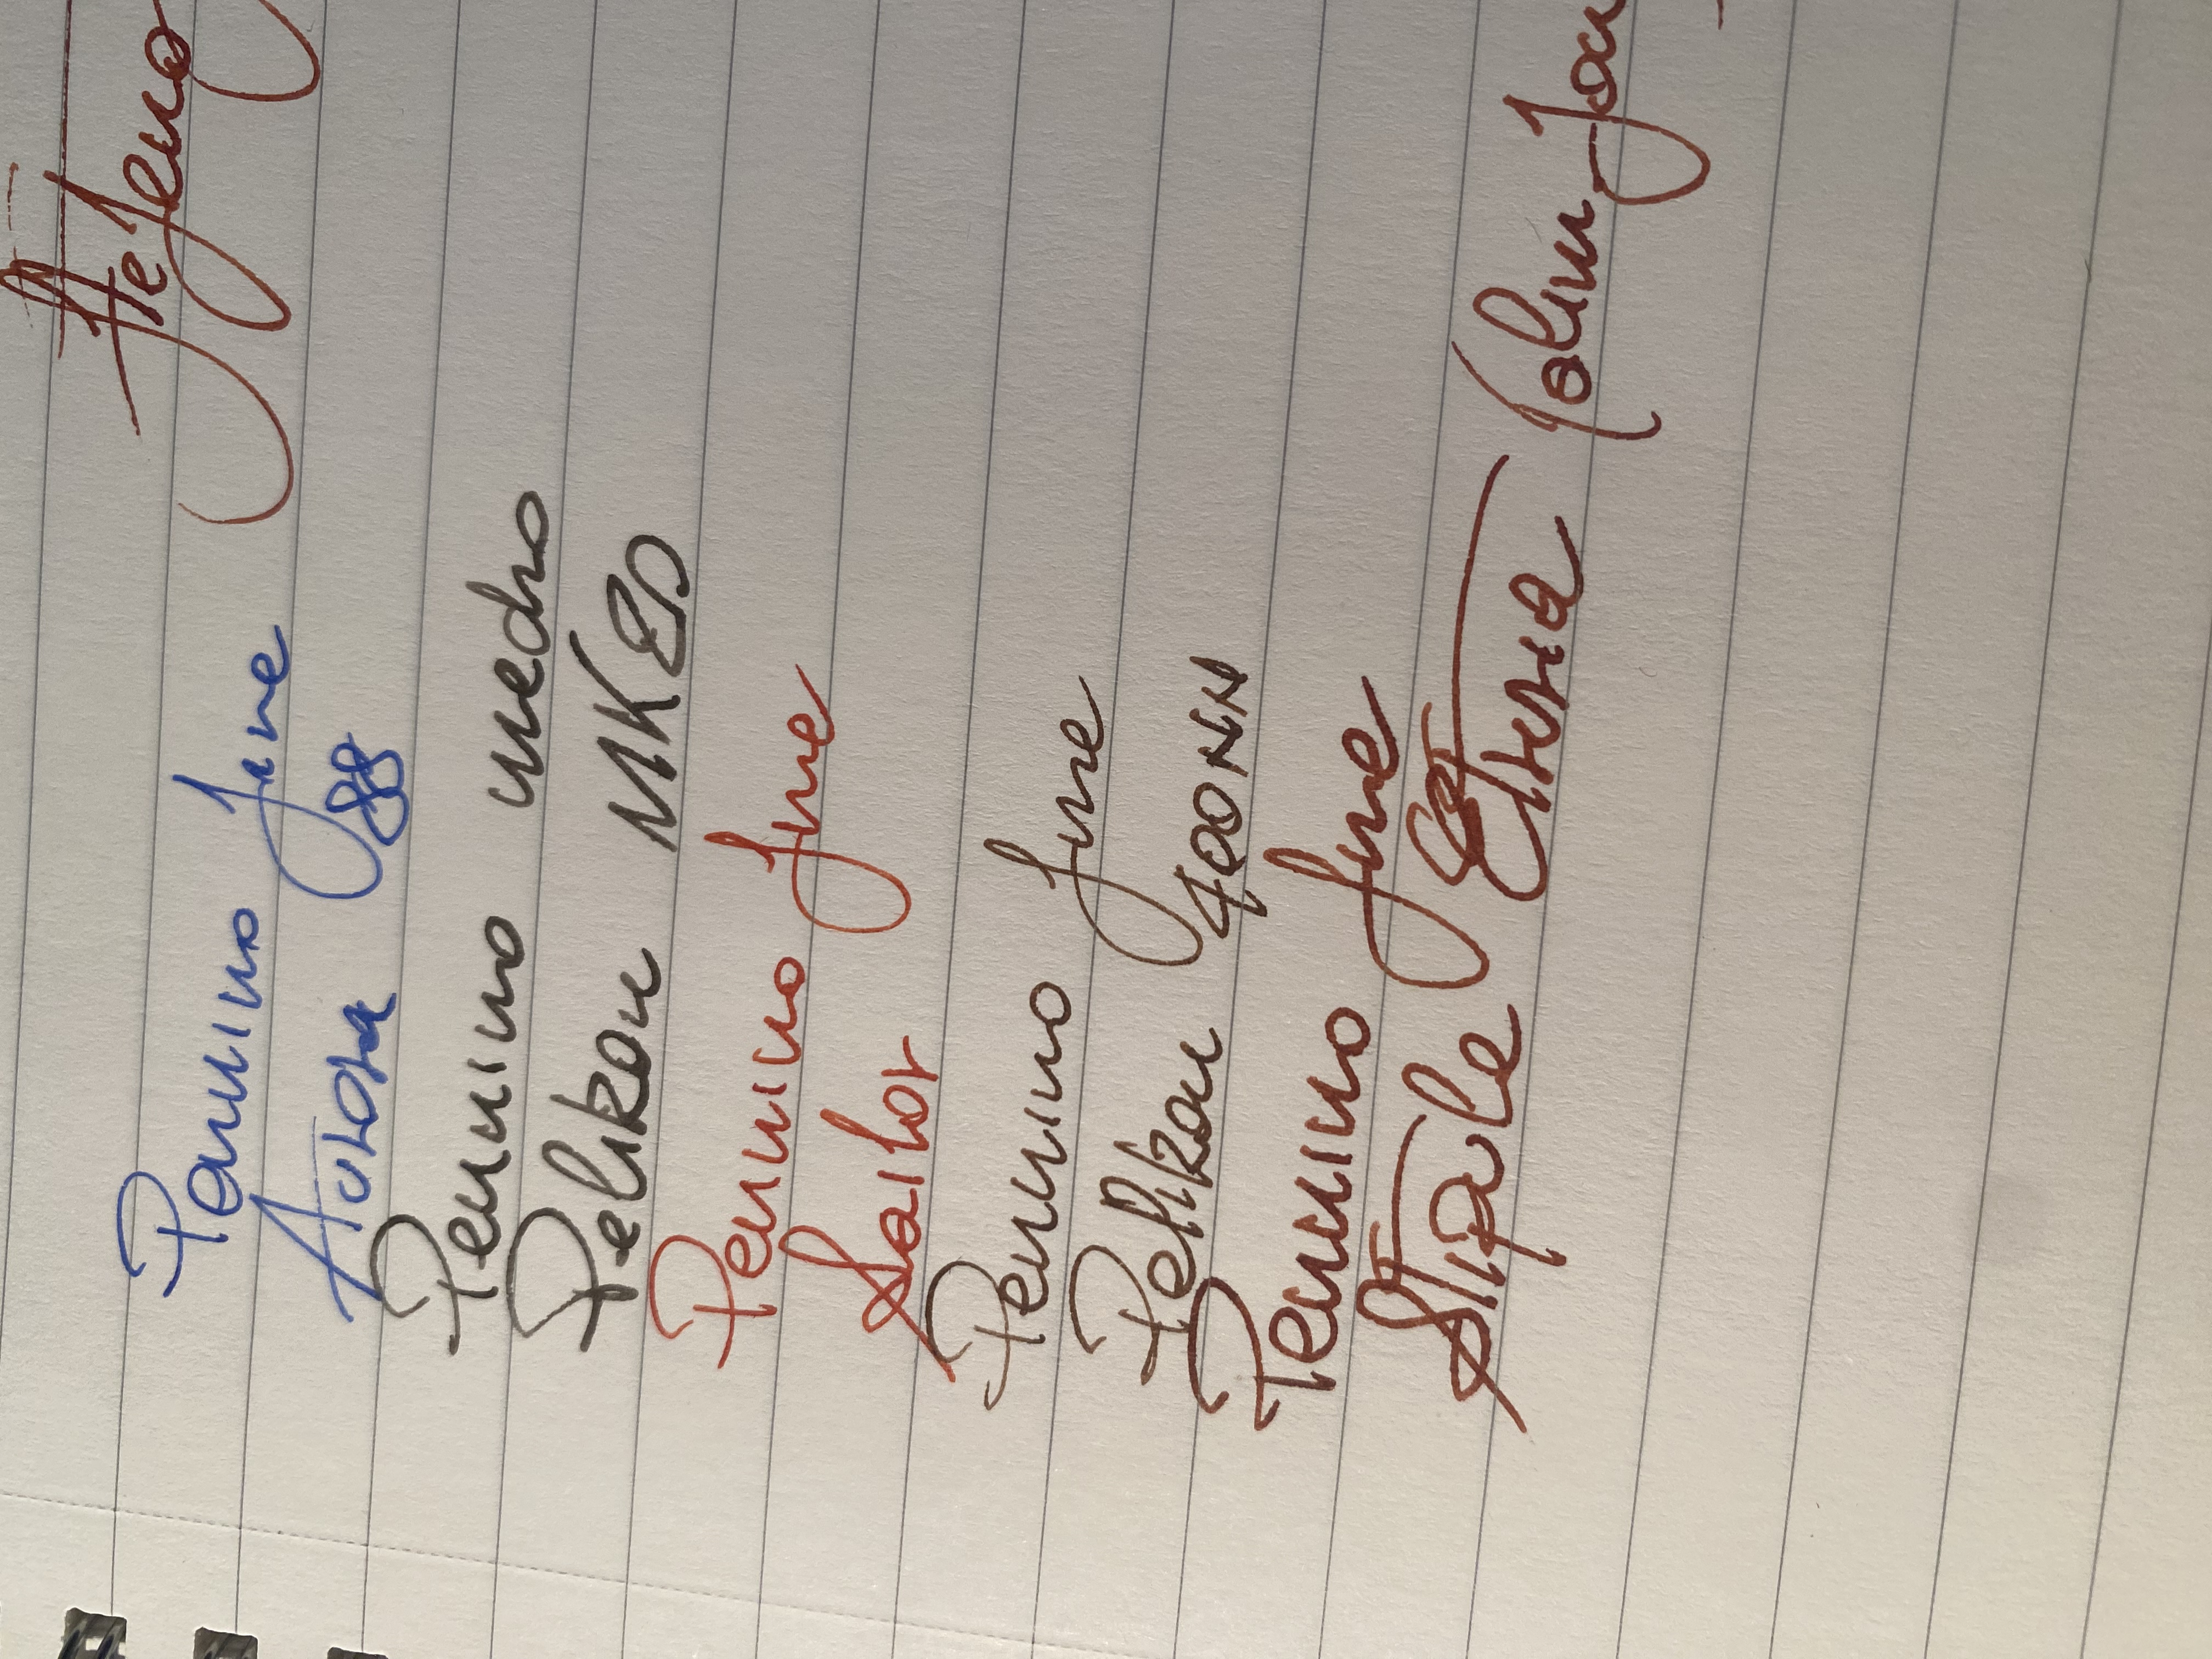 Pennino fine
Aurora 88
Pennino medio
Pelikan
Pennino fine
Sailor
Pennino fine
Pelikan 400NN
Pennino fine
Stipula Etruria